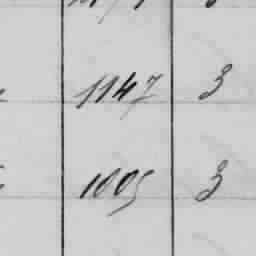 1147 3
1005 3